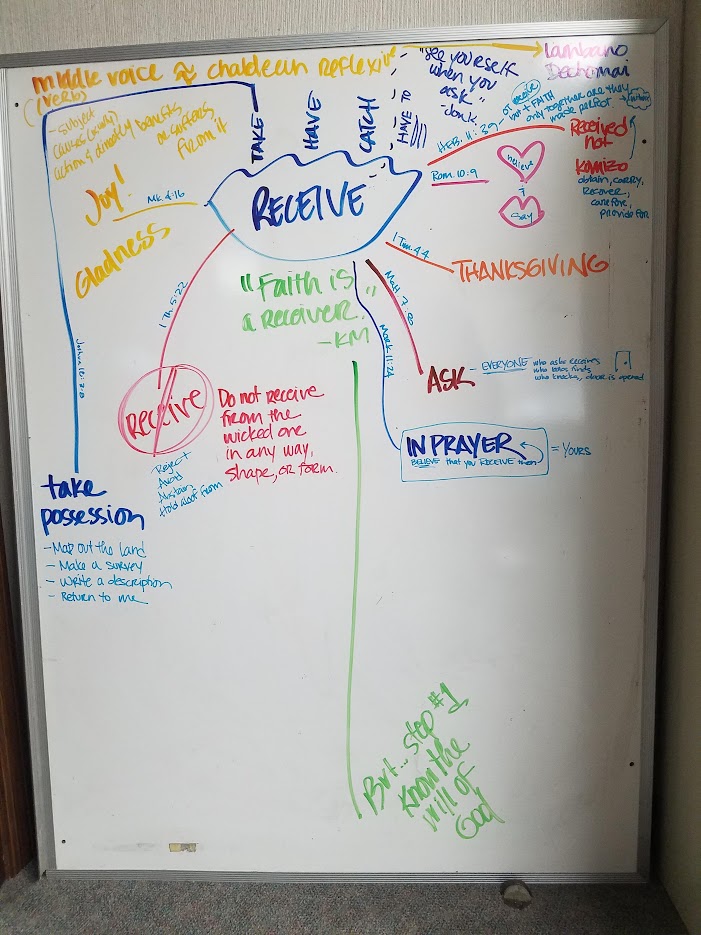 middle voice ≈ chaldean reflexive
(verb)
- subject
causes (usually)
action & directly benefits
or suffers
from it
"see yourself
when you
ask"
Lambano
Dechomai
TAKE
HAVE
CATCH
HAVE TO
HEB. 11:39 -
or receive
but + FAITH
only together are they
made perfect.
Received
not
Komizo
obtain, carry,
recover,
care for,
provide for
Rom. 10:9
believe
+
say
RECEIVE
Joy!
Mk. 4:16
Gladness
1 Tim. 4:4
THANKSGIVING
"Faith is
a receiver."
- KM
1 Th. 5:22
Matt 7:8
Mark 11:24
Receive
Do not receive
from the
wicked one
in any way,
shape, or form.
Reject
Avoid
Abstain
Hold aloof from
ASK
- EVERYONE who asks receives
who looks finds
who knocks, door is opened
IN PRAYER
BELIEVE that you RECEIVE them
= YOURS
take
possession
- Map out the land
- Make a survey
- Write a description
- Return to me
But... step #1
Know the
will of
God